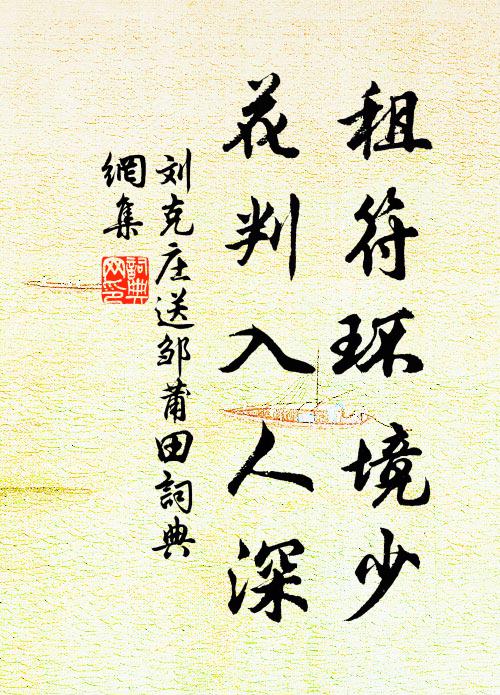 租符环境少
花判入人深
刘克庄送邹莆田詞典
網集
詞典网印